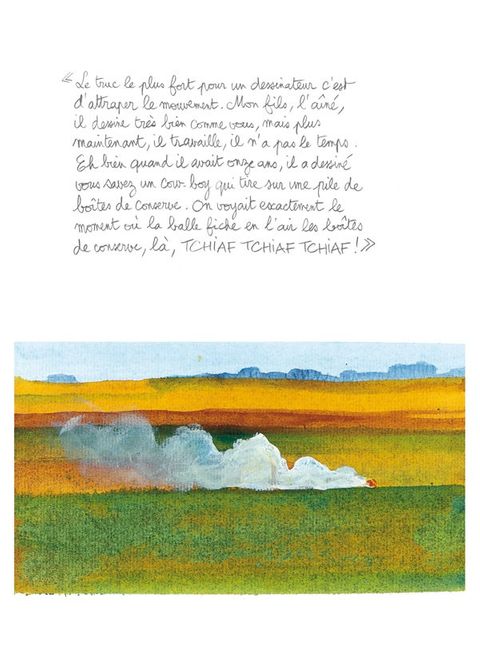 « Le truc le plus fort pour un dessinateur c'est
d'attraper le mouvement. Mon fils, l'aîné,
il dessine très bien comme vous, mais plus
maintenant, il travaille, il n'a pas le temps.
Eh bien quand il avait onze ans, il a dessiné
vous savez un cow-boy qui tire sur une pile de
boîtes de conserve. On voyait exactement le
moment où la balle fiche en l'air les boîtes
de conserve, là, TCHIAF TCHIAF TCHIAF ! »